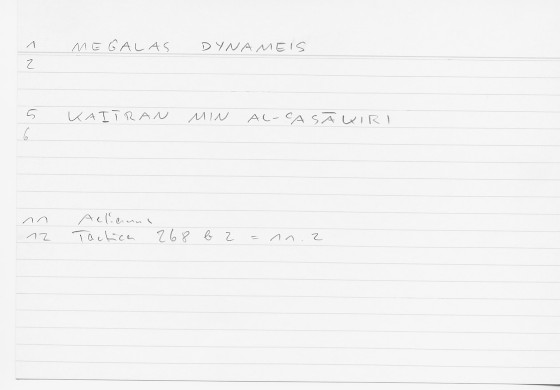 1 MEGALAS DYNAMEIS
2
5 KAṮĪRAN MIN AL-ʿASĀKIRI
6
11 Aelianus
12 Tactica 268 B 2 = 11.2